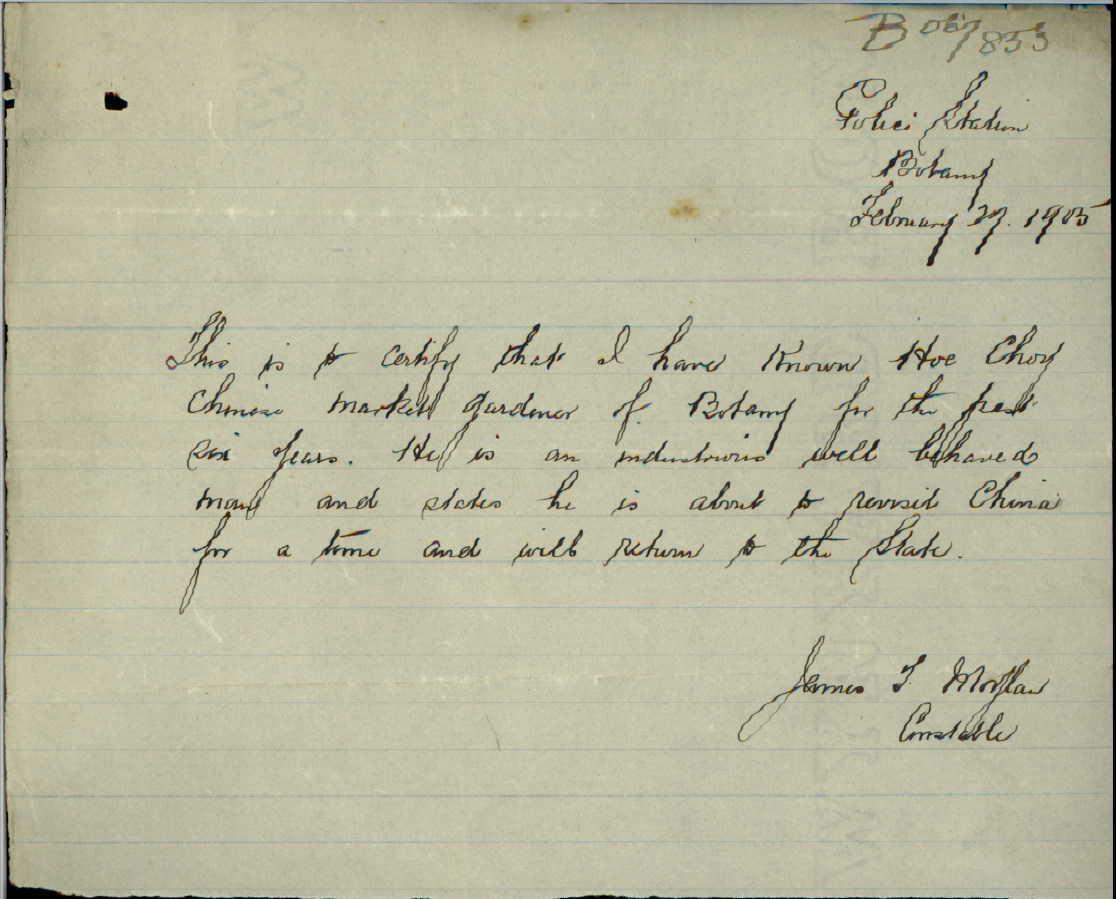 B 05/853
Police Station
Botany
February 27. 1905
This is to certify that I have Known Hoe Choy
Chinese market gardener of Botany for the past
six years. He is an industrious well behaved
man and states he is about to revisit China
for a time and will return to the State.
James T.
Constable